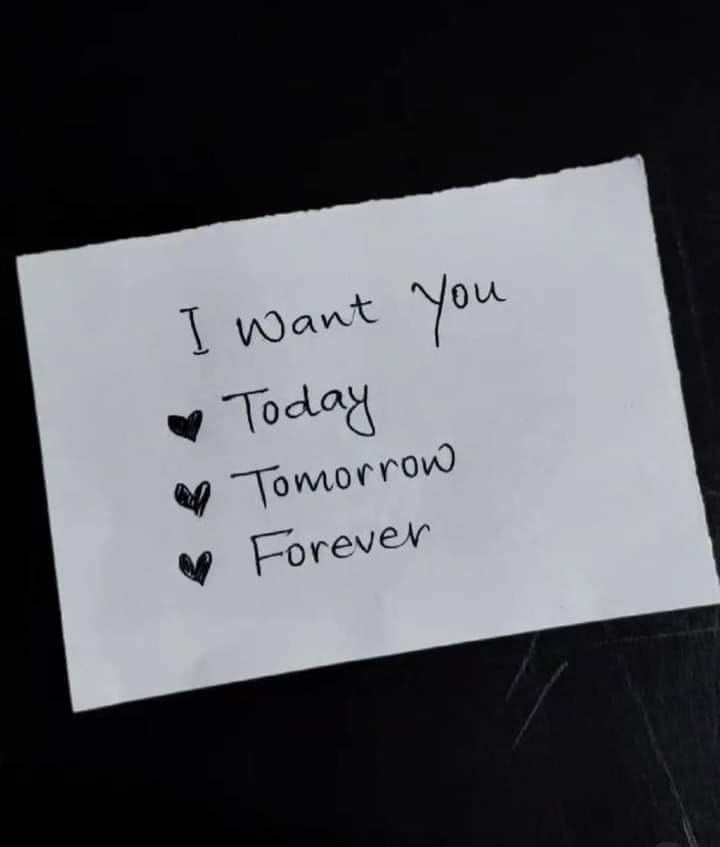 I Want You
♥ Today
♥ Tomorrow
♥ Forever